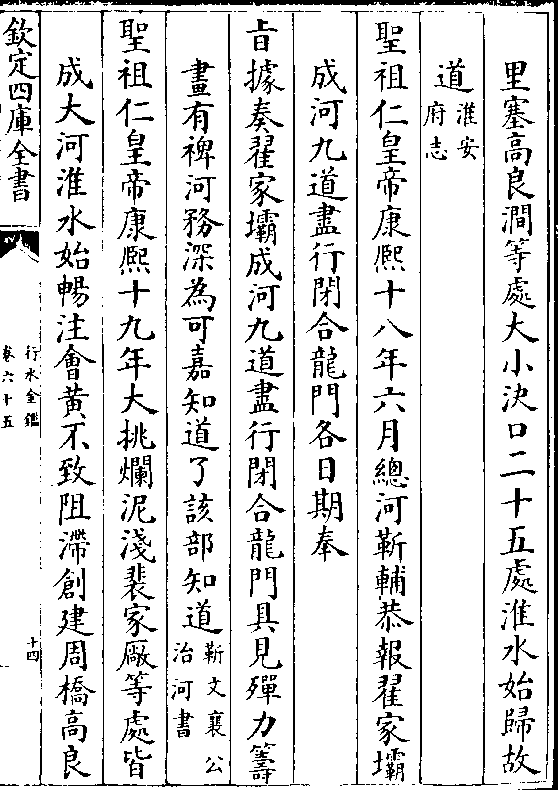 里塞高良澗等處大小決口二十五處淮水始歸故
道淮安府志
聖祖仁皇帝康熙十八年六月總河靳輔恭報翟家壩
成河九道盡行閉合龍門各日期奉
旨據奏翟家壩成河九道盡行閉合龍門具見殫力籌
畫有裨河務深為可嘉知道了該部知道靳文襄公治河書
聖祖仁皇帝康熙十九年大挑爛泥淺裴家厰等處皆
成大河淮水始暢注會黃不致阻滯創建周橋高良
欽定四庫全書
行水金鑑
卷六十五
十四